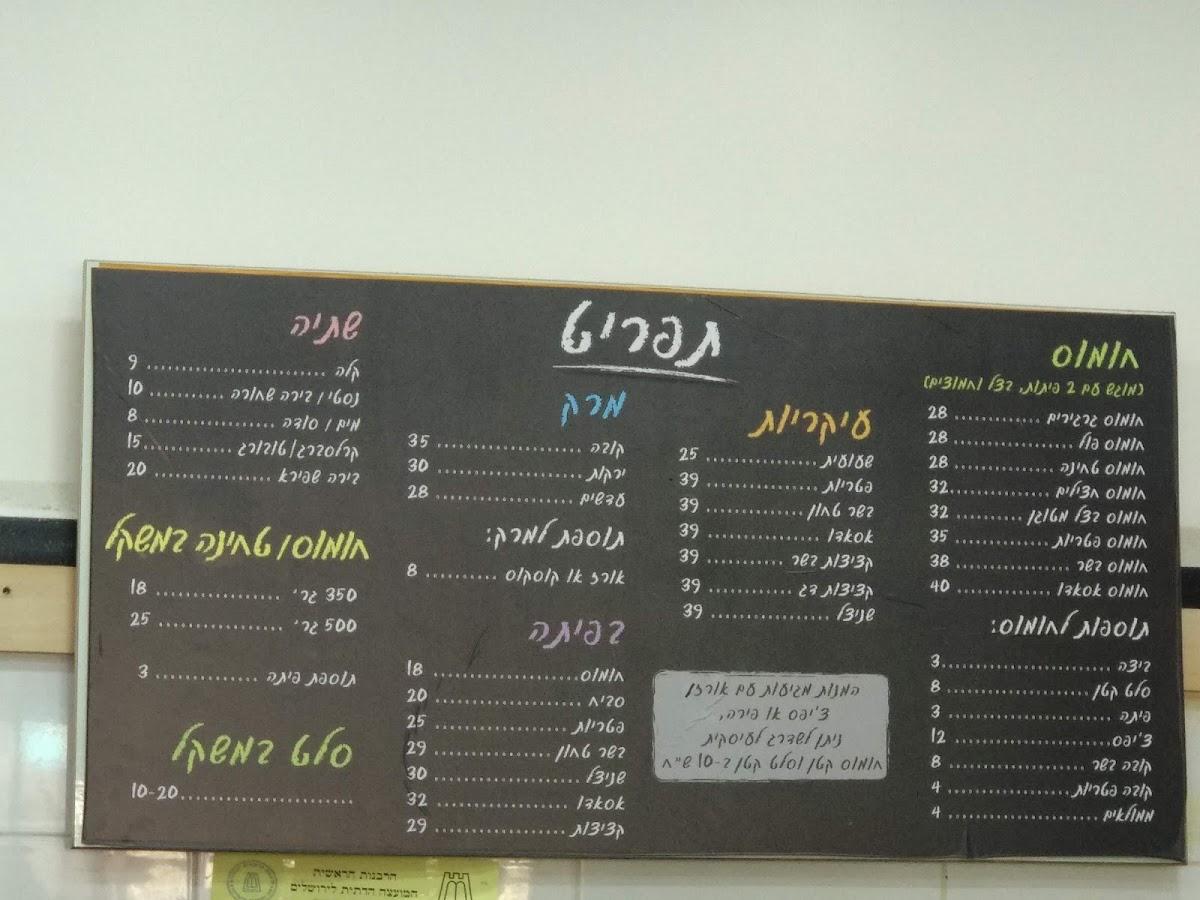 תפריט
חומוס
(מוגש עם 2 פיתות, בצל וחמוצים)
חומוס גרגירים ........ 28
חומוס פול ........ 28
חומוס טחינה ........ 28
חומוס חצילים ........ 32
חומוס בצל מטוגן ........ 32
חומוס פטריות ........ 35
חומוס בשר ........ 38
חומוס אסאדו ........ 40
תוספות לחומוס:
ביצה ........ 3
סלט קטן ........ 8
פיתה ........ 3
צ'יפס ........ 12
קובה בשר ........ 8
קובה פטריות ........ 4
ממולאים ........ 4
עיקריות
שעועית ........ 25
פטריות ........ 39
בשר טחון ........ 39
אסאדו ........ 39
קציצות בשר ........ 39
קציצות דג ........ 39
שניצל ........ 39
המנות מגיעות עם אורז/
צ'יפס או פירה,
ניתן לשדרג לעיסקית
חומוס קטן וסלט קטן ב-10 ש"ח
מרק
קובה ........ 35
ירקות ........ 30
עדשים ........ 28
תוספת למרק:
אורז או קוסקוס ........ 8
בפיתה
חומוס ........ 18
סביח ........ 20
פטריות ........ 25
בשר טחון ........ 29
שניצל ........ 30
אסאדו ........ 32
קציצות ........ 29
שתיה
קלה ........ 9
נסטי / בירה שחורה ........ 10
מים / סודה ........ 8
קרלסברג/טובורג ........ 15
בירה שפירא ........ 20
חומוס/טחינה במשקל
350 גר' ........ 18
500 גר' ........ 25
תוספת פיתה ........ 3
סלט במשקל
........ 10-20
הרבנות הראשית
המועצה הדתית לירושלים